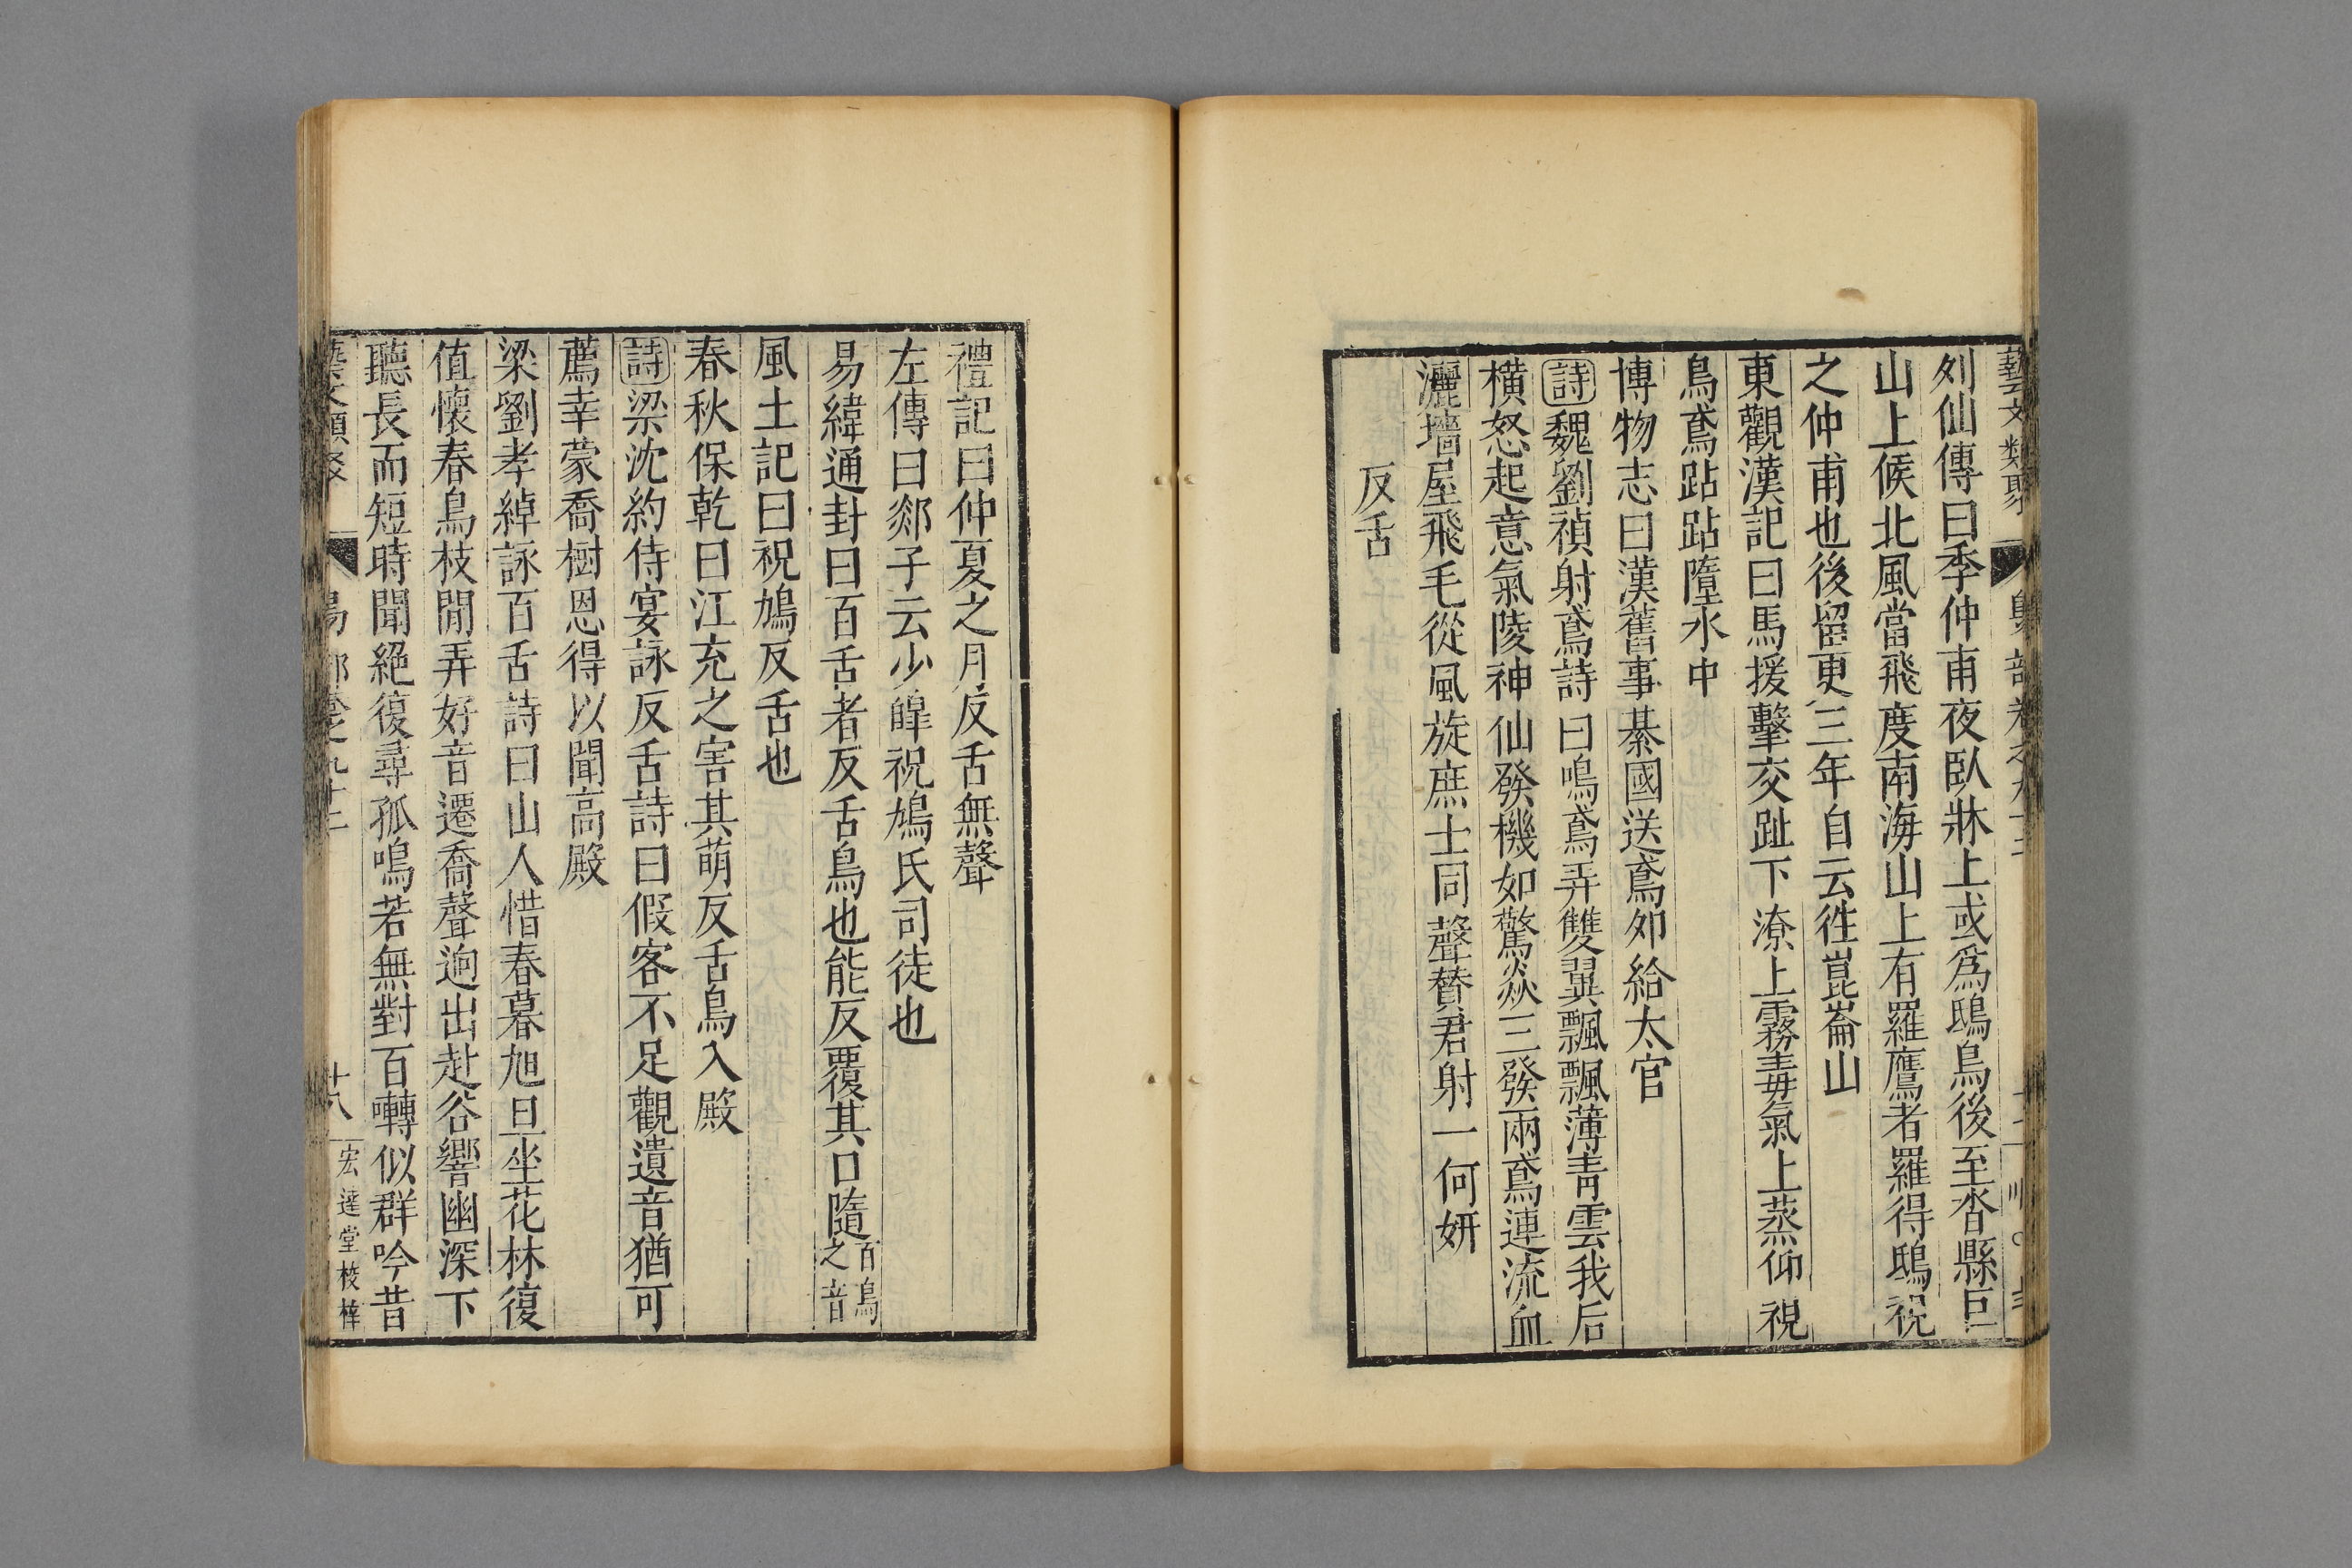 藝文類聚
列仙傳曰季仲甫夜臥牀上或爲鴟鳥後至沓縣巨
山上候北風當飛度南海山上有羅鷹者羅得鴟視
之仲甫也後留更三年自云徃崑崙山
東觀漢記曰馬援擊交趾下潦上霧毒氣上蒸仰視
鳥鳶跕跕墮水中
博物志曰漢舊事綦國送鳶夘給太官
詩魏劉禎射鳶詩曰鳴鳶弄雙翼飄飄薄青雲我后
橫怒起意氣陵神仙發機如驚焱三發兩鳶連流血
灑墻屋飛毛從風旋庶士同聲贊君射一何妍
反舌
禮記曰仲夏之月反舌無聲
左傳曰郯子云少皥祝鳩氏司徒也
易緯通封曰百舌者反舌鳥也能反覆其口隨百鳥之音
風土記曰祝鳩反舌也
春秋保乾曰江充之害其萌反舌鳥入殿
詩梁沈約侍宴詠反舌詩曰假客不足觀遺音猶可
薦幸蒙喬樹恩得以聞高殿
梁劉孝綽詠百舌詩曰山人惜春暮旭旦坐花林復
值懷春鳥枝閒弄好音遷喬聲迥出赴谷響幽深下
聽長而短時聞絕復尋孤鳴若無對百囀似群吟昔
十八
宏達堂校梓